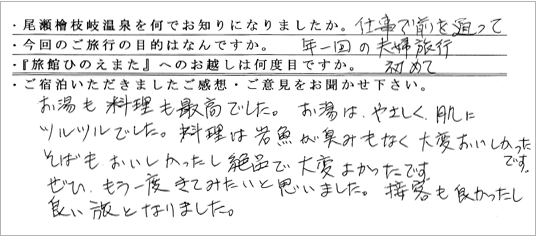 ・尾瀬檜枝岐温泉を何でお知りになりましたか。仕事で前を通って
・今回のご旅行の目的はなんですか。 年一回の夫婦旅行
・『旅館ひのえまた』へのお越しは何度目ですか。 初めて
・ご宿泊いただきましたご感想・ご意見をお聞かせ下さい。
お湯も料理も最高でした。お湯は、やさしく、肌に
ツルツルでした。料理は岩魚が臭みもなく大変おいしかった
です。
そばもおいしかったし絶品で大変よかったです。
ぜひ、もう一度きてみたいと思いました。接客も良かったし
良い旅となりました。